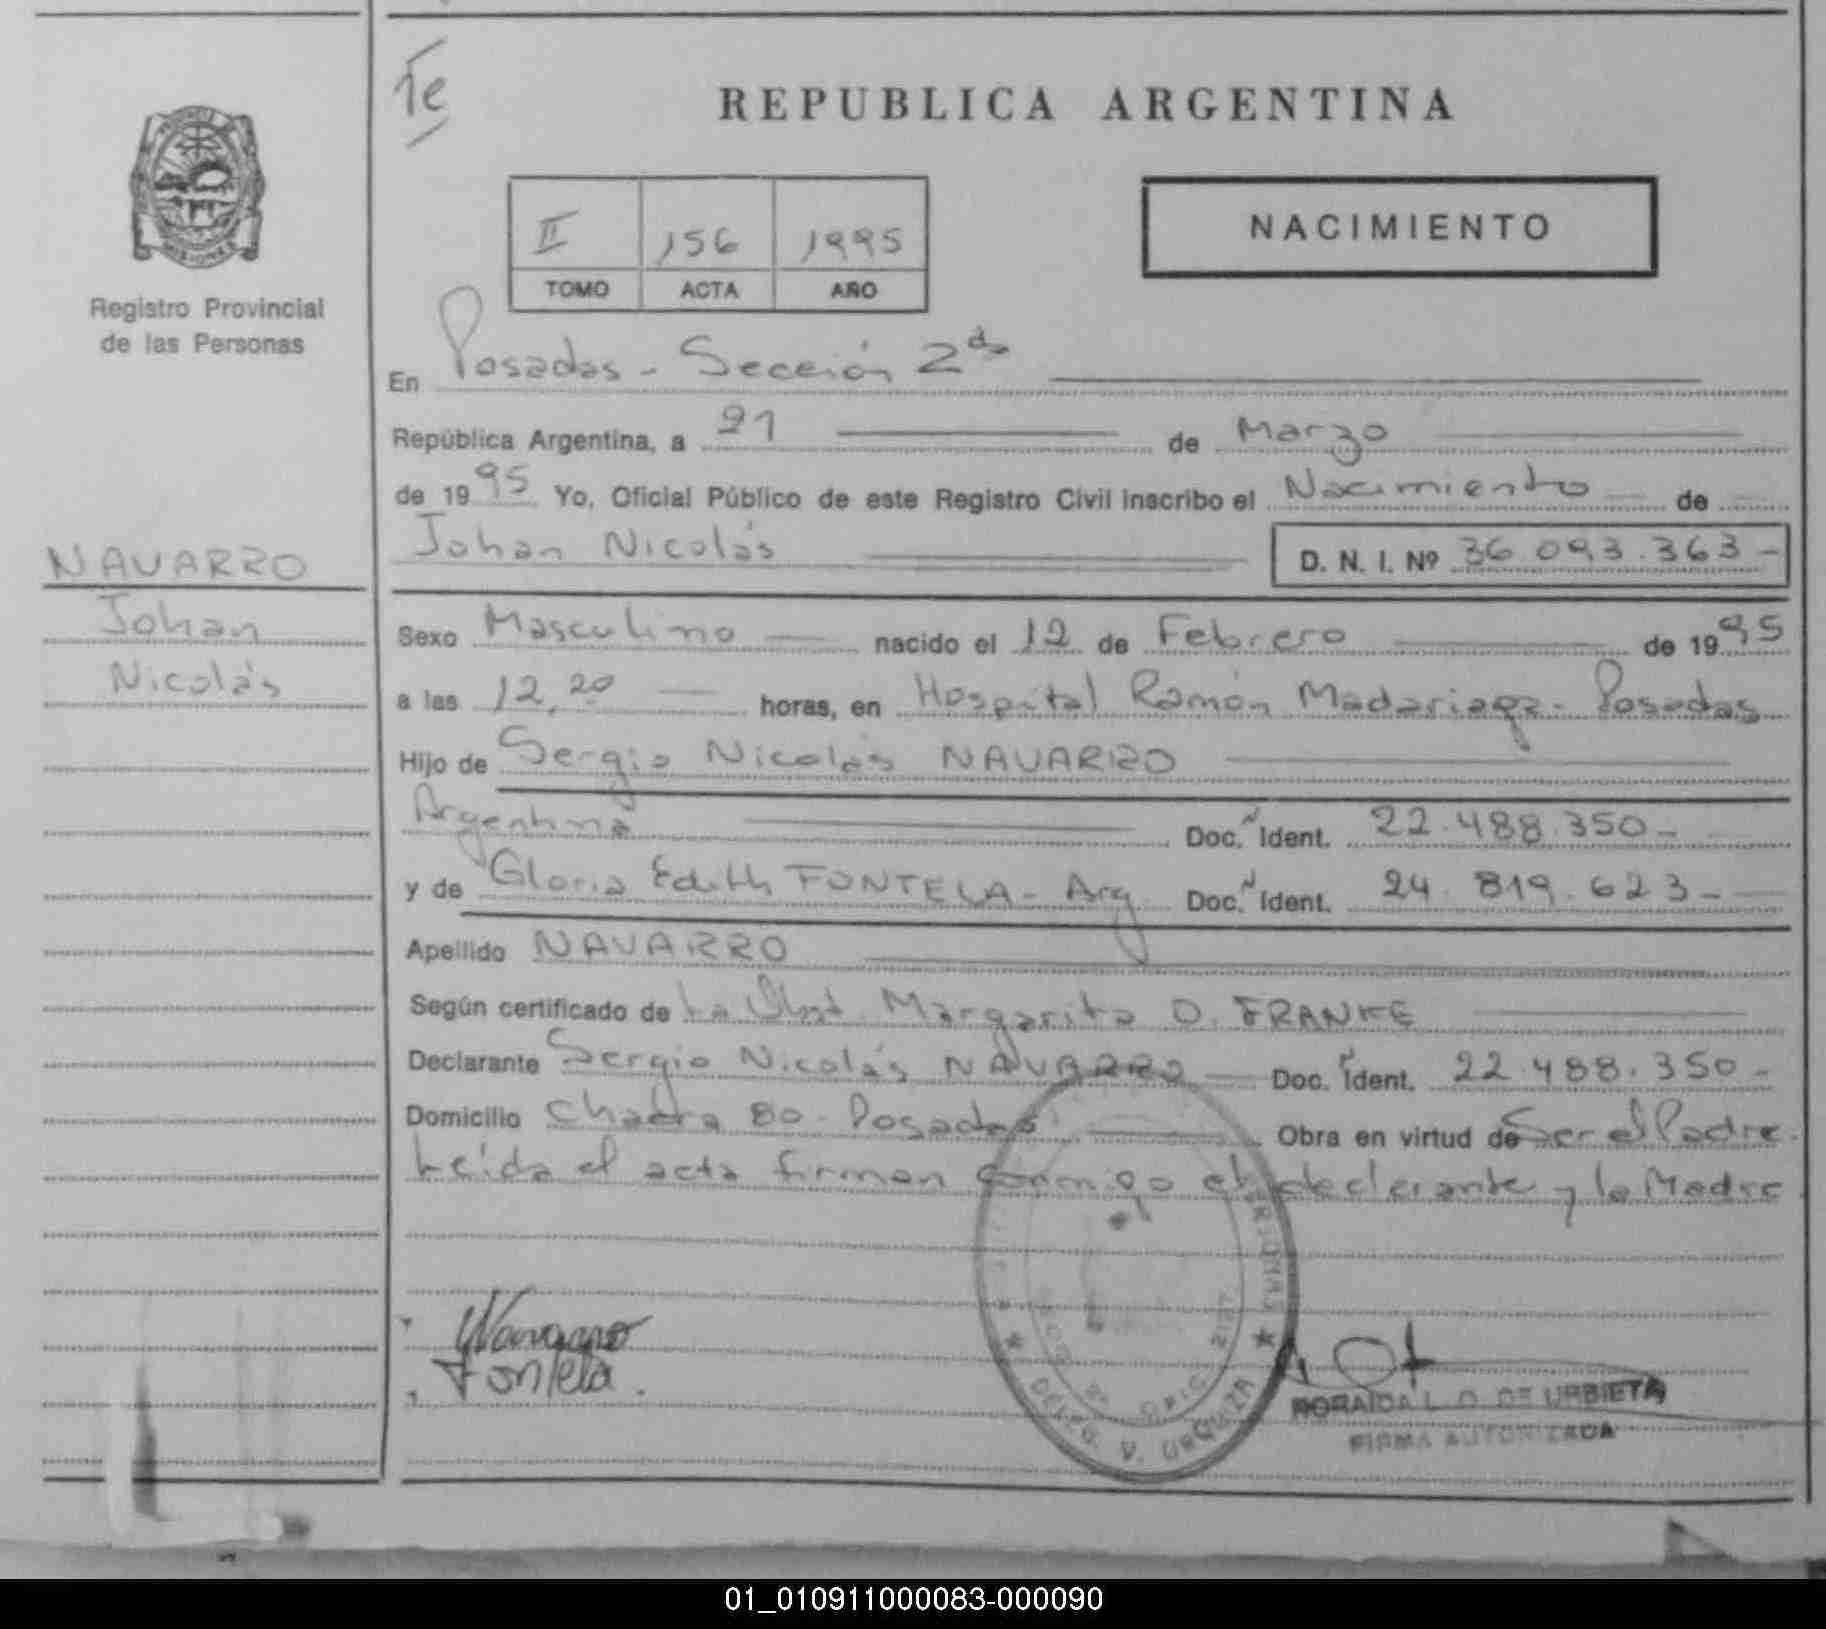 Te
REPUBLICA ARGENTINA
PROVINCIA
MISIONES
Registro Provincial
de las Personas
II 156 1995
TOMO ACTA AÑO
NACIMIENTO
En Posadas - Sección 2da
República Argentina, a 21 de Marzo
de 1995 Yo, Oficial Público de este Registro Civil inscribo el Nacimiento de
Johan Nicolás D. N. I. Nº 36.093.363-
NAVARRO
Johan
Nicolás
Sexo Masculino nacido el 12 de Febrero de 1995
a las 12,20 horas, en Hospital Ramón Madariaga - Posadas
Hijo de Sergio Nicolás NAVARRO
Argentina Doc. Ident. 22.488.350-
y de Gloria Edith FONTELA - Arg Doc. Ident. 24.819.623-
Apellido NAVARRO
Según certificado de La Obst. Margarita O. FRANKE
Declarante Sergio Nicolás NAVARRO Doc. Ident. 22.488.350-
Domicilio Chacra 80 - Posadas Obra en virtud de Ser el Padre.
Leída el acta firman conmigo el declarante y la Madre
Navarro
Fontela
DELEG. V. URQUIZA
OFIC. 2127
DE URBIETA
FIRMA AUTORIZADA
01_010911000083-000090